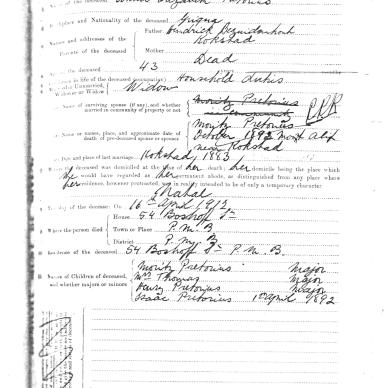 Birthplace and Nationality of the deceased
Names and addresses of the
Parents of the deceased
Father Hendrick Bezuidenhout
Kokstad
Mother
Dead
Age of the deceased 43
in life of the deceased (occupation) Household Duties
Widower or Widow Widow
Name of surviving spouse (if any), and whether
married in community of property or not
Moritz Pretorius
Name or names, place, and approximate date of
death of pre-deceased spouse or spouses
Moritz Pretorius
October 1892
near Kokstad
Date and place of last marriage Kokstad, 1883
deceased was domiciled at the time of her death; her domicile being the place which
would have regarded as her permanent abode, as distinguished from any place where
her residence, however protracted, was in reality intended to be of only a temporary character
Natal
day of the decease: On 16th April 1913
Where the person died
House 54 Boshoff St
Town or Place P. M. B
District P. M. B
Residence of the deceased 54 Boshoff St P. M. B.
Names of Children of deceased,
and whether majors or minors
Moritz Pretorius Major
Mrs Thomas Major
Pretorius Major
Isaac Pretorius 10 April 1892